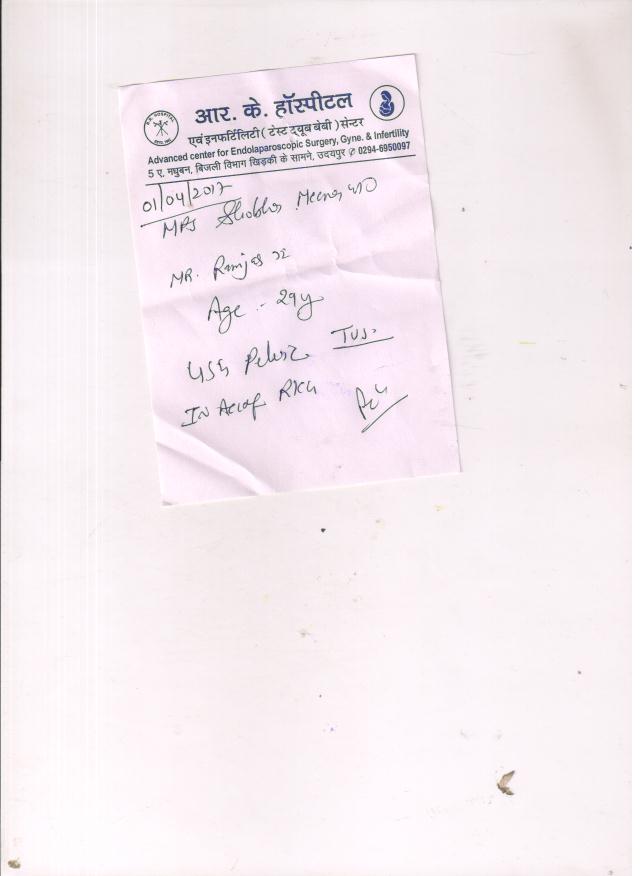 आर. के. हॉस्पीटल
एवं इनफर्टिलिटी ( टेस्ट ट्यूब बेबी ) सेन्टर
Advanced center for Endolaparoscopic Surgery, Gyne. & Infertility
5 ए, मधुबन, बिजली विभाग खिड़की के सामने, उदयपुर ✆ 0294-6950097
01/04/2017
MRS Shobha Meena
MR.
Age - 29y
USG Pelvis TVS
IN